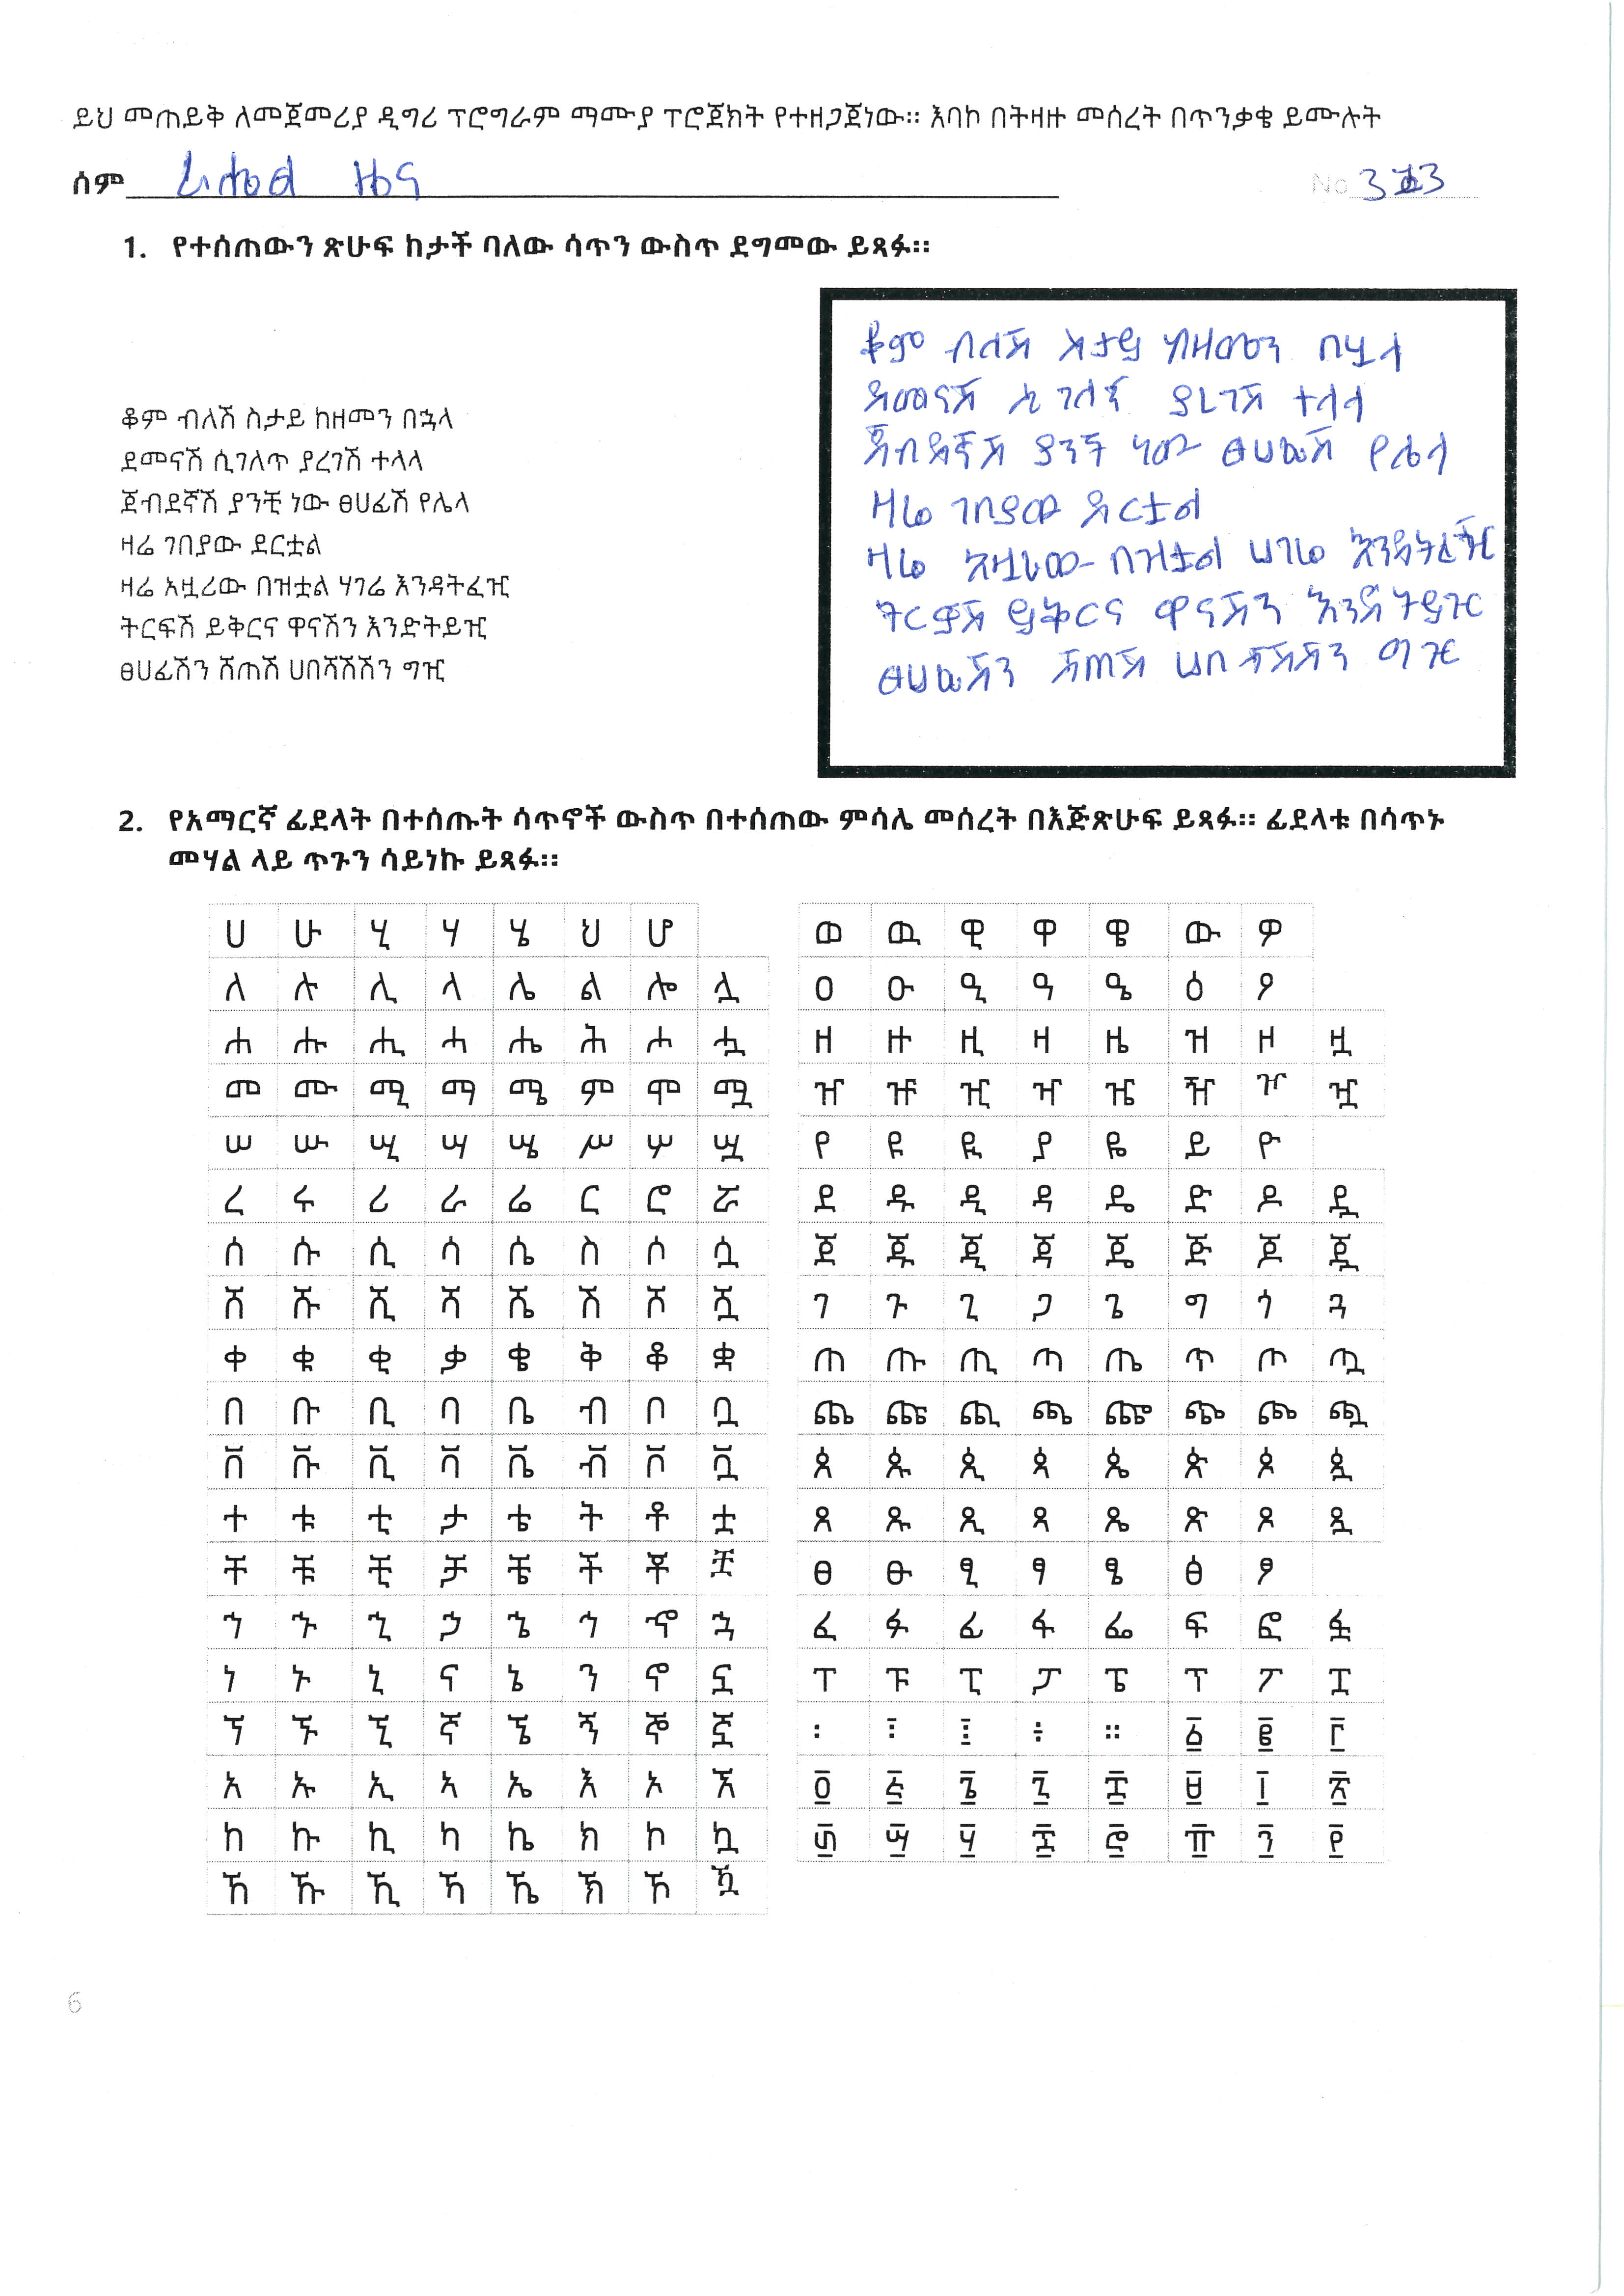 ይህ መጠይቅ ለመጀመሪያ ዲግሪ ፕሮግራም ማሙያ ፕሮጀክት የተዘጋጀነው። እባኮ በትዛዙ መሰረት በጥንቃቄ ይሙሉት
ስም ዜና No
1. የተሰጠውን ጽሁፍ ከታች ባለው ሳጥን ውስጥ ደግመው ይጻፉ።
ቆም ብለሽ ስታይ ከዘመን በኋላ
ደመናሽ ሲገለጥ ያረገሽ ተላላ
ጀብደኛሽ ያንቺ ነው ፀሀፊሽ የሌላ
ዛሬ ገበያው ደርቷል
ዛሬ አዟሪው በዝቷል ሃገሬ እንዳትፈዢ
ትርፍሽ ይቅርና ዋናሽን እንድትይዢ
ፀሀፊሽን ሸጠሽ ሀበሻሽሽን ግዢ
ቆም ብለሽ ስታይ ከዘመን በኋላ
ደመናሽ ሲገለጥ ያረገሽ ተላላ
ጀብደኛሽ ያንች ነው ፀሀፊሽ የሌላ
ዛሬ ገበያው ደርቷል
ዛሬ አዟሪው በዝቷል ሀገሬ እንዳትፈዢ
ትርፍሽ ይቅርና ዋናሽን እንድትይዢ
ፀሀፊሽን ሸጠሽ ሀበሻሽሽን ግዢ
2. የአማርኛ ፊደላት በተሰጡት ሳጥኖች ውስጥ በተሰጠው ምሳሌ መሰረት በእጅጽሁፍ ይጻፉ። ፊደላቱ በሳጥኑ
መሃል ላይ ጥጉን ሳይነኩ ይጻፉ።
ሀ ሁ ሂ ሃ ሄ ህ ሆ
ለ ሉ ሊ ላ ሌ ል ሎ ሏ
ሐ ሑ ሒ ሓ ሔ ሕ ሖ ሗ
መ ሙ ሚ ማ ሜ ም ሞ ሟ
ሠ ሡ ሢ ሣ ሤ ሥ ሦ ሧ
ረ ሩ ሪ ራ ሬ ር ሮ ሯ
ሰ ሱ ሲ ሳ ሴ ስ ሶ ሷ
ሸ ሹ ሺ ሻ ሼ ሽ ሾ ሿ
ቀ ቁ ቂ ቃ ቄ ቅ ቆ ቋ
በ ቡ ቢ ባ ቤ ብ ቦ ቧ
ቨ ቩ ቪ ቫ ቬ ቭ ቮ ቯ
ተ ቱ ቲ ታ ቴ ት ቶ ቷ
ቸ ቹ ቺ ቻ ቼ ች ቾ ቿ
ኀ ኁ ኂ ኃ ኄ ኅ ኆ ኋ
ነ ኑ ኒ ና ኔ ን ኖ ኗ
ኘ ኙ ኚ ኛ ኜ ኝ ኞ ኟ
አ ኡ ኢ ኣ ኤ እ ኦ ኧ
ከ ኩ ኪ ካ ኬ ክ ኮ ኳ
ኸ ኹ ኺ ኻ ኼ ኽ ኾ ዃ
ወ ዉ ዊ ዋ ዌ ው ዎ
ዐ ዑ ዒ ዓ ዔ ዕ ዖ
ዘ ዙ ዚ ዛ ዜ ዝ ዞ ዟ
ዠ ዡ ዢ ዣ ዤ ዥ ዦ ዧ
የ ዩ ዪ ያ ዬ ይ ዮ
ደ ዱ ዲ ዳ ዴ ድ ዶ ዷ
ጀ ጁ ጂ ጃ ጄ ጅ ጆ ጇ
ገ ጉ ጊ ጋ ጌ ግ ጎ ጓ
ጠ ጡ ጢ ጣ ጤ ጥ ጦ ጧ
ጨ ጩ ጪ ጫ ጬ ጭ ጮ ጯ
ጰ ጱ ጲ ጳ ጴ ጵ ጶ ጷ
ጸ ጹ ጺ ጻ ጼ ጽ ጾ ጿ
ፀ ፁ ፂ ፃ ፄ ፅ ፆ
ፈ ፉ ፊ ፋ ፌ ፍ ፎ ፏ
ፐ ፑ ፒ ፓ ፔ ፕ ፖ ፗ
፡ ፣ ፤ ÷ ። ፩ ፪ ፫
፬ ፭ ፮ ፯ ፰ ፱ ፲ ፳
፴ ፵ ፶ ፷ ፸ ፹ ፺ ፻
6